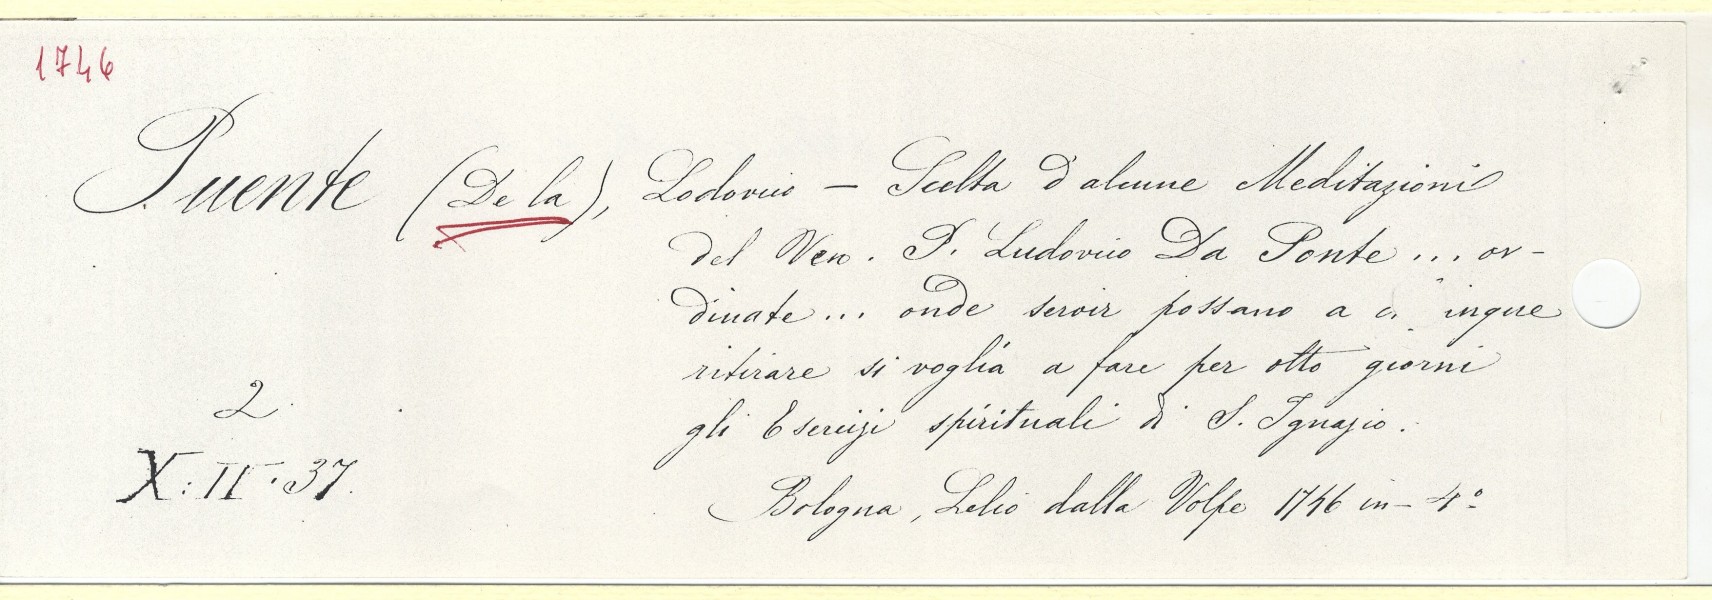 1746
Puente (De la), Lodovico — Scelta d'alcune Meditazioni
del Ven. P. Ludovico Da Ponte... or-
dinate... onde servir possano a ingue
ritirare si voglia a fare per otto giorni
gli Esercizi spirituali di S. Ignazio.
2
X. II. 37.
Bologna, Lelio dalla Volpe 1746 in-4°